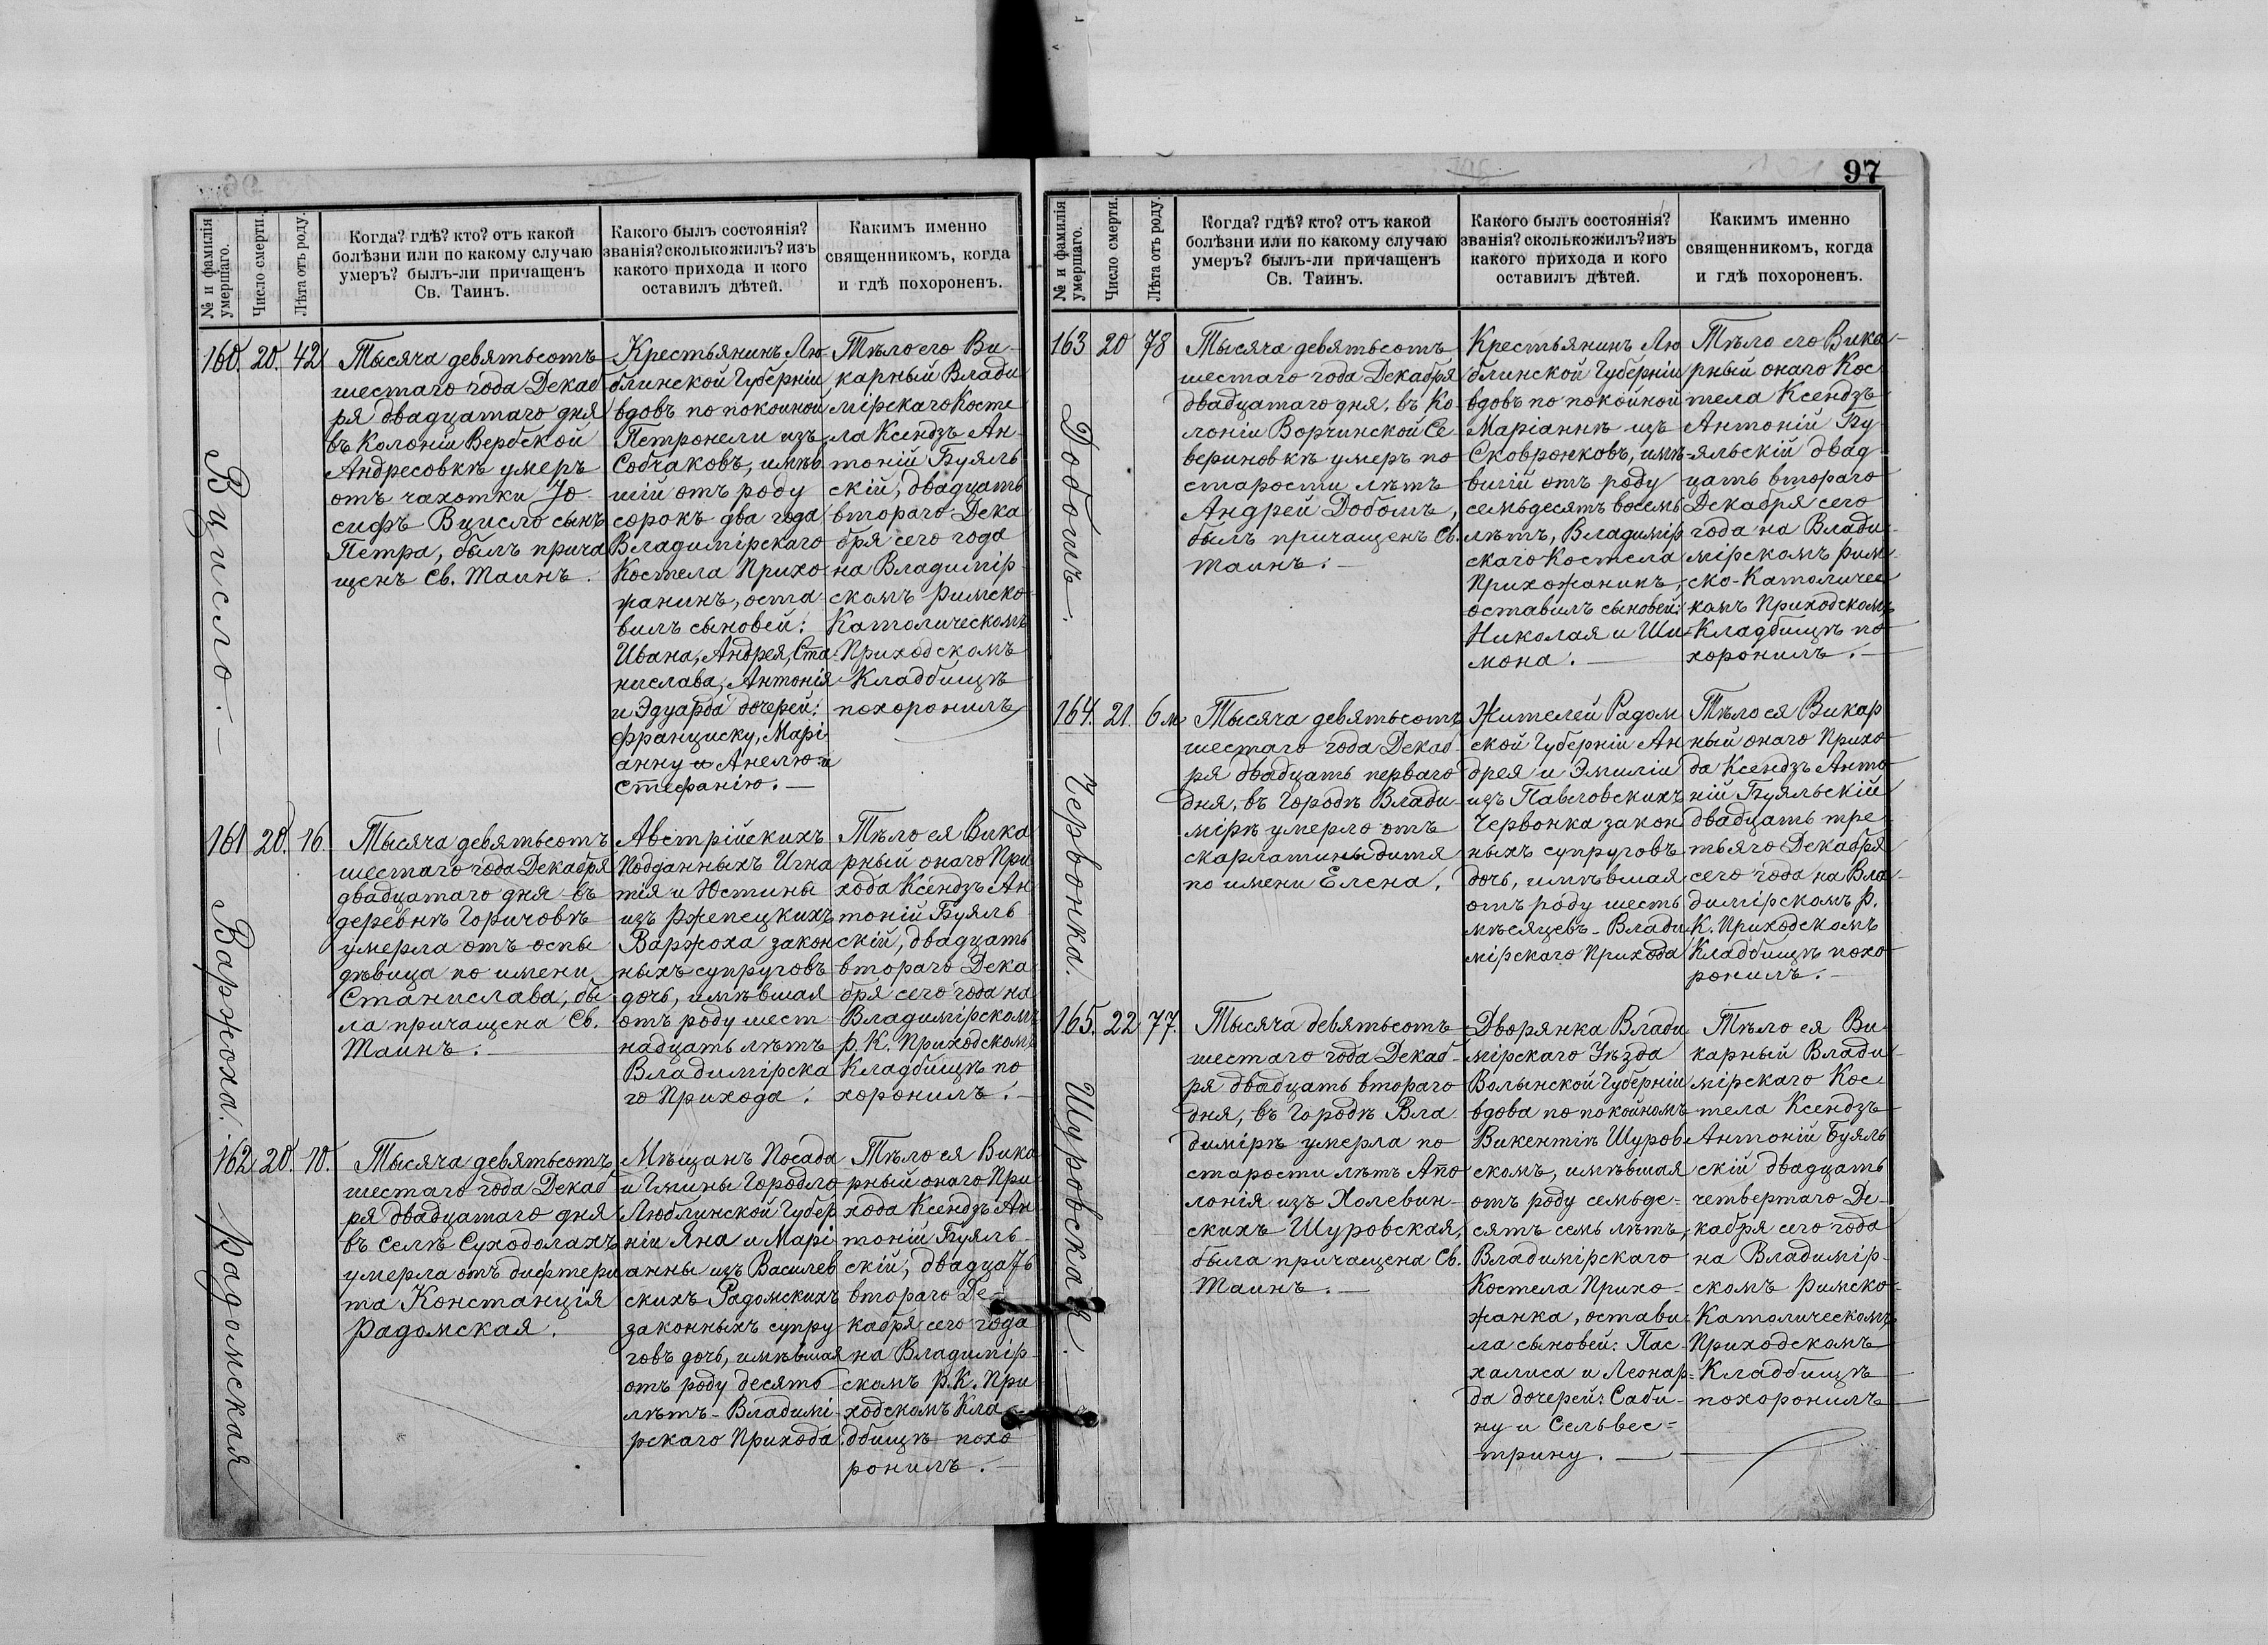 № и фамилія умершаго.
Число смерти.
Лѣта отъ роду.
Когда? гдѣ? кто? отъ какой
болѣзни или по какому случаю
умеръ? былъ-ли причащенъ
Св. Таинъ.
Какого былъ состоянія?
званія? сколько жилъ? изъ
какого прихода и кого
оставилъ дѣтей.
Какимъ именно
священникомъ, когда
и гдѣ похороненъ.
160. 20. 42
Вцисло.
Тысяча девятьсотъ
шестаго года Декаб
ря двадцатаго дня
въ Колоніи Вербской
Андресовкѣ умеръ
отъ чахотки Іо
сифъ Вцисло сынъ
Петра, былъ прича
щенъ Св. Таинъ.
Крестьянинъ Лю
блинской Губерніи
вдовъ по покойной
Петронели изъ
Собчаковъ, имѣв
шій отъ роду
сорокъ два года
Владимірскаго
Костела Прихо
жанинъ, оста
вилъ сыновей:
Ивана, Андрея, Ста
нислава, Антонія
и Эдуарда дочерей:
Франциску, Марі
анну и Анелю и
Стефанію.
Тѣло его Ви-
карный Влади
мірскаго Косте
ла Ксендзъ Ан-
тоній Буяль
скій, двадцать
втораго Дека
бря сего года
на Владимір-
скомъ Римско
Католическомъ
Приходскомъ
Кладбищѣ
похоронилъ
161 20. 16.
Варжоха.
Тысяча девятьсотъ
шестаго года Декабря
двадцатаго дня въ
деревнѣ Горичовѣ
умерла отъ оспы
дѣвица по имени
Станислава, бы
ла причащена Св.
Таинъ.
Австрійскихъ
Подданныхъ Игна
тія и Юстины
изъ Ржепецкихъ
Варжоха закон
ныхъ супруговъ
дочь, имѣвшая
отъ роду шест
надцать лѣтъ
Владимірска
го Прихода.
Тѣло ея Вика
рный онаго При
хода Ксендзъ Ан
тоній Буяль
скій, двадцать
втораго Дека
бря сего года на
Владимірскомъ
Р. К. Приходскомъ
Кладбищѣ по
хоронилъ.
162 20. 10.
Радомская
Тысяча девятьсотъ
шестаго года Декаб
ря двадцатаго дня
въ селѣ Суходолахъ
умерла отъ дифтери
та Констанція
Радомская.
Мѣщанъ Посада
и Гмины Городло
Люблинской Губер
ніи Яна и Марі
анны изъ Василев
скихъ Радомскихъ
законныхъ супру
говъ дочь, имѣвшая
отъ роду десять
лѣтъ - Владимі
рскаго Прихода.
Тѣло ея Вика
рный онаго При
хода Ксендзъ Ан
тоній Буяль-
скій, двадцать
втораго Де-
кабря сего года
на Владимір-
скомъ Р. К. При
ходскомъ Кла
дбищѣ похо
ронилъ.
97
№ и фамилія умершаго.
Число смерти.
Лѣта отъ роду.
Когда? гдѣ? кто? отъ какой
болѣзни или по какому случаю
умеръ? былъ-ли причащенъ
Св. Таинъ.
Какого былъ состоянія?
званія? сколько жилъ? изъ
какого прихода и кого
оставилъ дѣтей.
Какимъ именно
священникомъ, когда
и гдѣ похороненъ.
163 20 78
Добошъ.
Тысяча девятьсотъ
шестаго года Декабря
двадцатаго дня, въ Ко-
лоніи Ворчинской Се
вериновкѣ умеръ по
старости лѣтъ
Андрей Добошъ,
былъ причащенъ Св.
Таинъ.
Крестьянинъ Лю
блинской Губерніи
вдовъ по покойной
Маріаннѣ изъ
Сковронковъ, имѣ-
вшій отъ роду
семьдесятъ восемь
лѣтъ, Владимір
скаго Костела
Прихожанинъ,
оставилъ сыновей:
Николая и Ши-
мона.
Тѣло его Вика-
рный онаго Кос
тела Ксендзъ
Антоній Бу
яльскій двад
цать втораго
Декабря сего
года на Влади-
мірскомъ Рим-
ско-Католичес
комъ Приходскомъ
Кладбищѣ по
хоронилъ.
164. 21. 6 м
Червонка.
Тысяча девятьсотъ
шестаго года Декаб-
ря двадцать перваго
дня, въ Городѣ Влади-
мірѣ умерло отъ
скарлатины дитя
по имени Елена.
Жителей Радом
ской Губерніи Ан
дрея и Эмиліи
изъ Павловскихъ
Червонка закон
ныхъ супруговъ
дочь, имѣвшая
отъ роду шесть
мѣсяцевъ - Влади
мірскаго Прихода
Тѣло ея Викар
ный онаго Прихо-
да Ксендзъ Анто
ній Буяльскій
двадцать тре-
тьяго Декабря
сего года на Вла-
димірскомъ Р.
К. Приходскомъ
Кладбищѣ похо
ронилъ.
165. 22 77.
Шуровская.
Тысяча девятьсотъ
шестаго года Декаб-
ря двадцать втораго
дня, въ Городѣ Вла
димірѣ умерла по
старости лѣтъ Апо
лонія изъ Холевин-
скихъ Шуровская,
была причащена Св.
Таинъ.
Дворянка Влади
мірскаго Уѣзда
Волынской Губерніи
вдова по покойномъ
Викентіѣ Шуров
скомъ, имѣвшая
отъ роду семьде-
сятъ семь лѣтъ,
Владимірскаго
Костела Прихо-
жанка, остави-
ла сыновей: Пас-
халиса и Леонар-
да дочерей: Саби-
ну и Сельвес=
трину.
Тѣло ея Ви
карный Влади-
мірскаго Кос-
тела Ксендзъ
Антоній Буяль
скій двадцать
четвертаго Де-
кабря сего года
на Владимір-
скомъ Римско-
Католическомъ
Приходскомъ
Кладбищѣ
похоронилъ